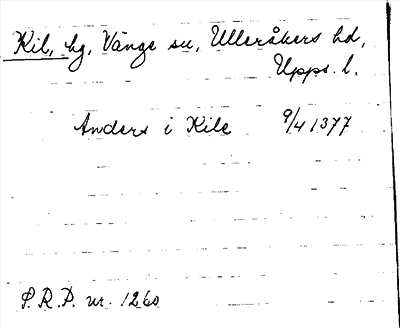 Kil, hg, Vänge sn, Ulleråkers hd,
Upps. l.
Anders i Kile 9/4 1377
S.R.P. nr. 1260